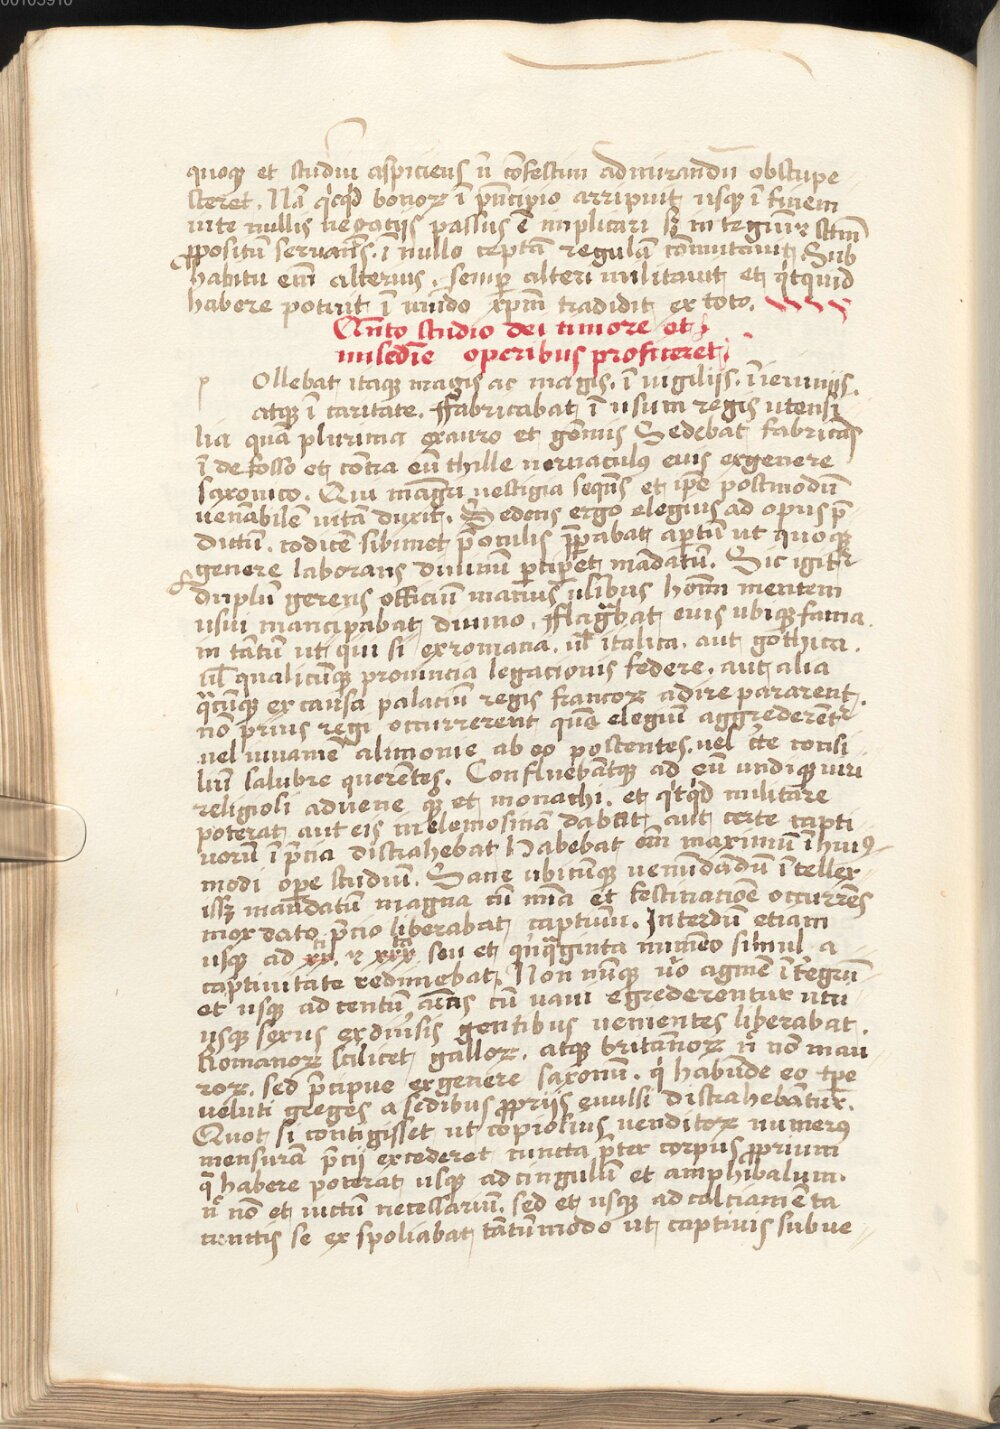 00103910
quoqꝫ et studiū aspiciens n̄ cōfestim admirandū obstupe
sceret. Nā q̇cq̇d bonoꝝ ī p̄ncipio arripuit usqꝫ ī finem
vite nullis negocijs passus ē implicari sꝫ in tegrūꝝ stūm
ꝓpositū servans. ī nullo ceptā regulā cōmutavit. Sub
habitu em̄ alterius. semꝑ alteri militavit et q̇tquid
habere potuit ī mūdo xp̄m tradidit ex toto.
Qn̄to studio dei timore et
misc̄die operibus proficeret
p Ollebat itaqꝫ magis ac magis. ī vigilijs. ī ieiunijs.
atqꝫ ī caritate. ffabricabat ī usum regis utensi
lia quā plurima ex auro et gēmis Sedebat fabricās
ī defosso et cōtra eū thille vernaculꝰ euis ex genere
saxonico. Qui magr̄i vestigia sequēs et ip̄e postmodū
venābilē vitā duxit. Sedens ergo elegius ad opus p̄
dictū. codicē sibimet p̄ oculis p̄parabat aꝑtū ut quoqꝫ
genere laborans divinū ꝑcipet mandatū. Sic igit̄
duplū gerens officiū manus usibus hoīm mentem
usui mancipabat divino. fflagrabat euis ubiqꝫ fama
in tātū ut qui si ex romana. ul̄ italica. aut gothica.
ul̄ qualicūqꝫ provincia legacionis federe. aut alia
q̄cūqꝫ ex causa palaciū regis francoꝝ adire pararent.
nō prius regi occurrerent quā elegiū aggrederent̄
vel iuvamē alimonie ab eo poscentes. vel cte consi
liū salubre querētes. Confluebātqꝫ ad eū undiqꝫ viri
religiosi advene qꝫ et monachi. et q̇tq̇d militare
poterat aut eis in elemosinā dabat aut certe capti
vorū ī p̄cia distrahebat Habebat em̄ maximū ī huiꝰ
modi opere studiū. Sane ubicūqꝫ venūdādū ītellex
issꝫ mancipatū magna cū mīa et festinacioē occurrēs
mox dato p̄cio liberabat captivū. Interdū etiam
usqꝫ ad xx. ⁊ xxx seu et q̇nq̄ginta numēo simul a
captivitate redimebat. Non nūqꝫ v̇o agmē ītegrū
et usqꝫ ad centū āīas cū navi egrederentur utri
usqꝫ sexus ex div̄sis gentibus venientes liberabat.
Romanoꝝ scilicet galloꝝ. atqꝫ britannoꝝ n̄ nō mau
roꝝ. sed p̄cipue ex genere saxonū. q̇ habūde eo tp̄e
veluti greges a sedibus ꝓprijs evulsi distrahebātur.
Quot si contigisset ut copiosius venditoꝝ numerꝰ
mensurā p̄cij excederet cuncta p̄ter corpus ꝓprium
q̄ habere poterat usqꝫ ad cingulū et amphibalum.
n̄ nō et victū necessariū. sed et usqꝫ ad calciamēta
cunctis se exspoliabat tātūmodo ut captivis subve